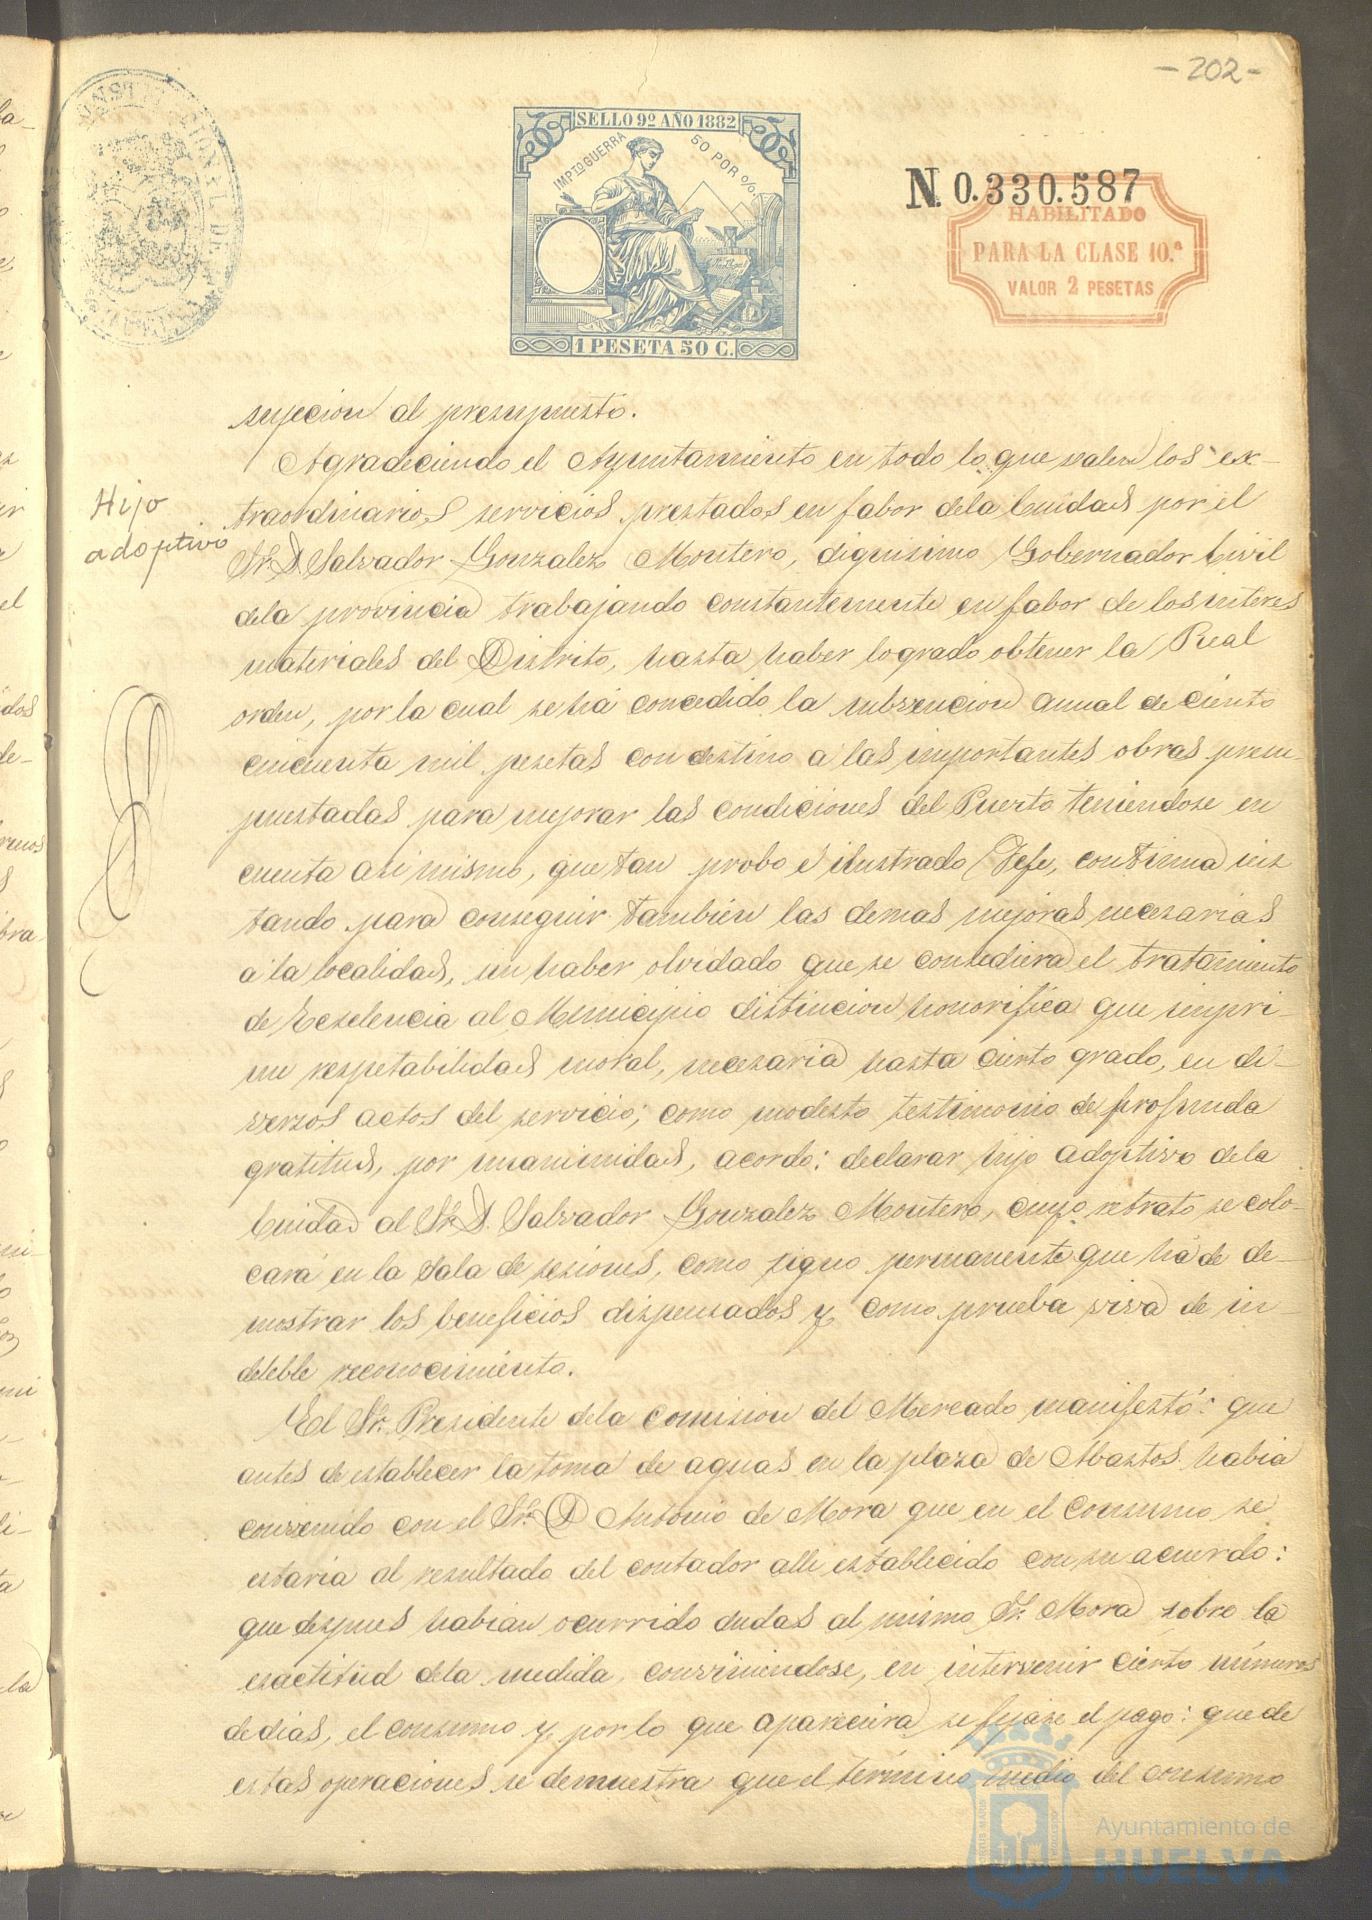 - 202 -
SELLO 9º AÑO 1882
IMPTO GUERRA 50 POR %
1 PESETA 50 C.
N. 0.330.587
HABILITADO
PARA LA CLASE 10.ª
VALOR 2 PESETAS
sujecion al presupuesto.
Hijo
adoptivo
Agradeciendo el Ayuntamiento en todo lo que valen los ex-
traordinarios servicios prestados en fabor dela Ciudad por el
Sr. D. Salvador Gonzalez Montero, dignisimo Gobernador Civil
dela provincia trabajando constantemente en fabor de los interes
materiales del Distrito, hasta haber logrado obtener la Real
orden, por la cual se há concedido la subvencion anual de ciento
cincuenta mil pesetas con destino a las importantes obras presu-
puestadas para mejorar las condiciones del Puerto teniendose en
cuenta asi mismo, que tan probo é ilustrado Jefe, continua ins
tando para conseguir tambien las demas mejoras necesarias
a la localidad, sin haber olvidado que se concediera el tratamiento
de Escelencia al Municipio distincion honorifica que impri-
me respetabilidad moral, necesaria hasta cierto grado, en di-
versos actos del servicio; como modesto testimonio de profunda
gratitud, por unanimidad, acordo: declarar hijo adoptivo dela
Ciudad al Sr. D. Salvador Gonzalez Montero, cuyo retrato se colo-
cará en la Sala de sesiones, como signo permanente que há de de-
mostrar los beneficios dispensados y como prueba viva de in-
deleble reconocimiento.
El Sr. Presidente dela comision del Mercado manifestó: que
antes de establecer la toma de aguas en la plaza de Abastos habia
convenido con el Sr. D Antonio de Mora que en el consumo se
estaria al resultado del contador alli establecido con su acuerdo:
que despues habian ocurrido dudas al mismo Sr. Mora sobre la
exactitud dela medida, conviniendose, en intervenir cierto números
de dias, el consumo y por lo que apareciera se fijase el pago: que de
estas operaciones se demuestra que el término medio del consumo
Ayuntamiento de
HUELVA